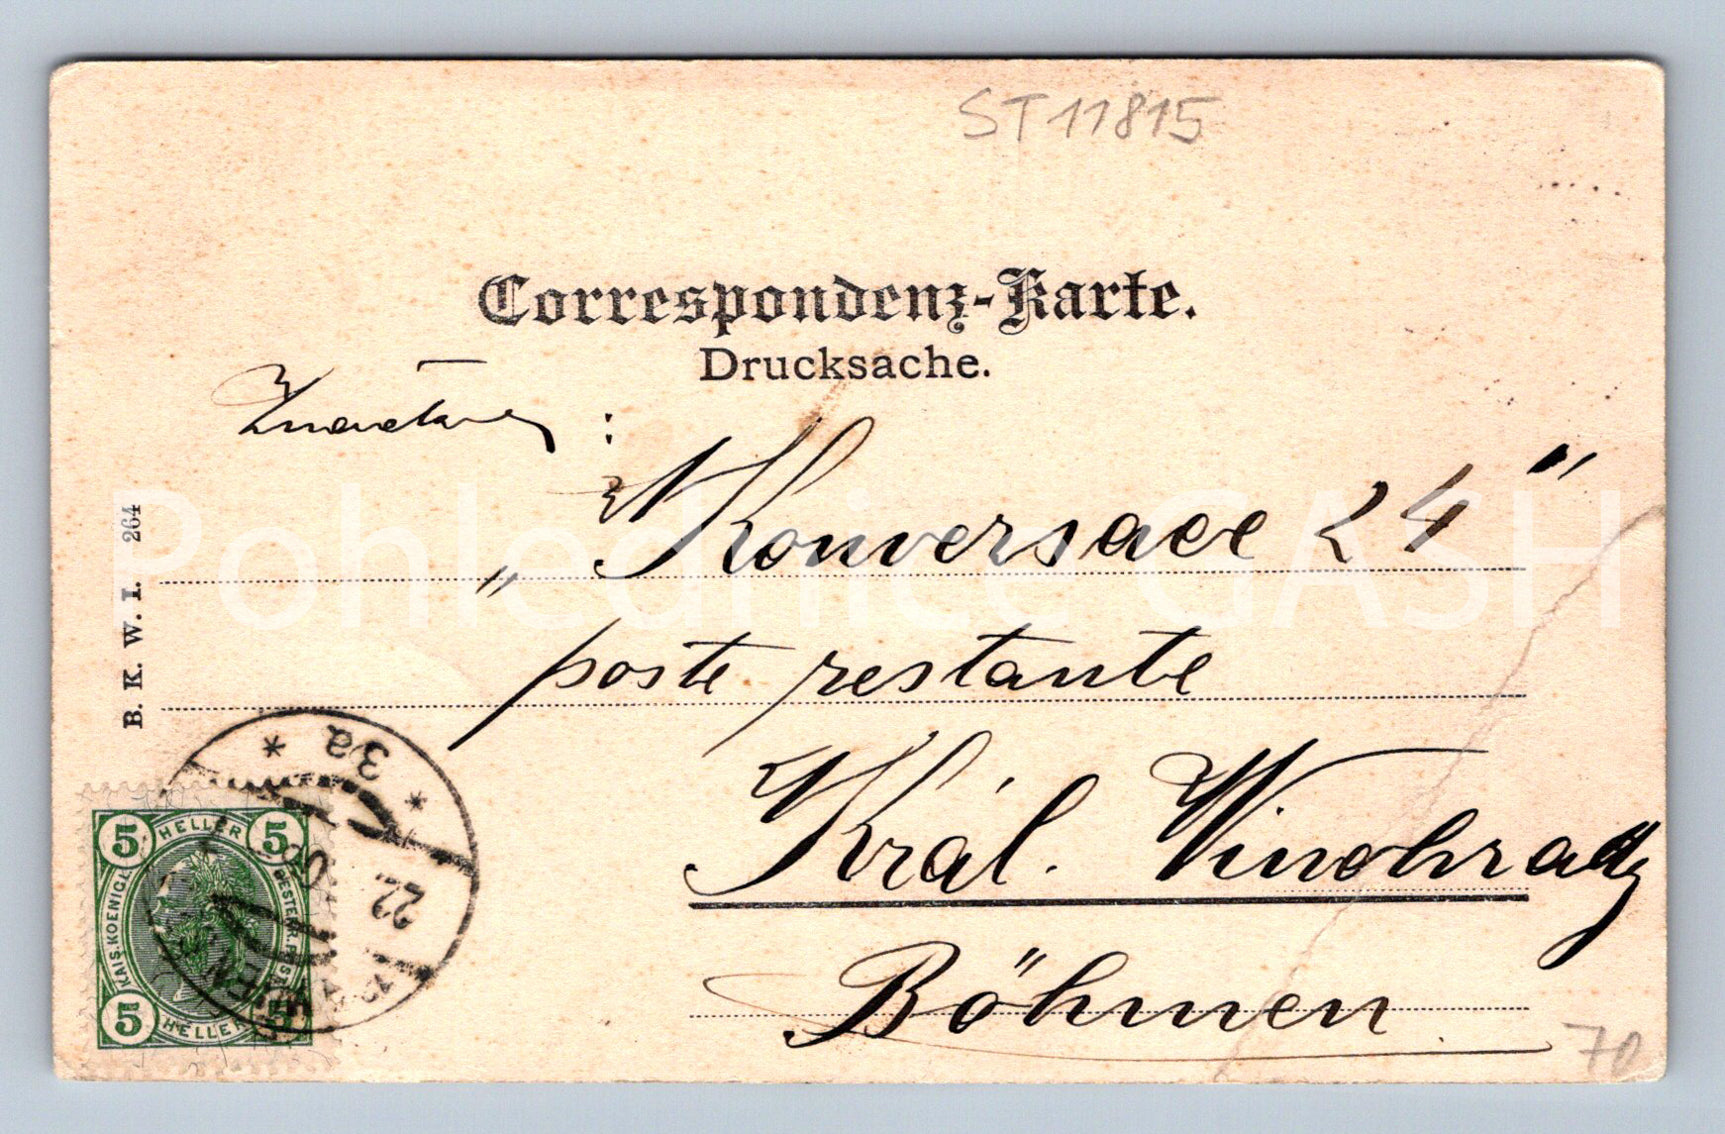 ST11815
Correspondenz-Karte.
Drucksache.
:
„Konversace 24"
poste restante
Král. Vinohrady
Böhmen
B. K. W. I. 264
3a
22
5 HELLER 5
KAIS. KOENIGL. OESTERR. POST
5 HELLER 5
70
Pohlednice GASH